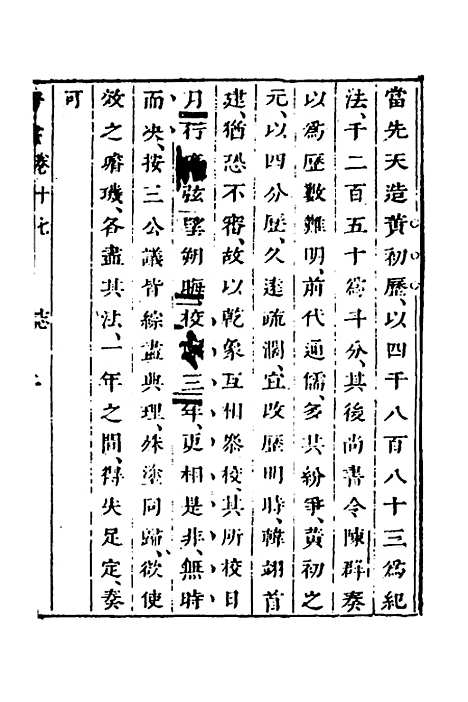 當先天造黃初曆、以四千八百八十三爲紀
法、千二百五十爲斗分、其後尚書令陳群奏
以爲曆數難明、前代通儒、多共紛爭、黃初之
元、以四分曆、久遠疏濶、宜改曆明時、韓翊首
建、猶恐不審、故以乾象互相參校、其所校日
月行 弦望朔晦校 三年、更相是非、無時
而决、按三公議皆綜盡典理、殊塗同歸、欲使
效之璿璣、各盡其法、一年之間、得失足定、奏
可
晉書卷十七 志